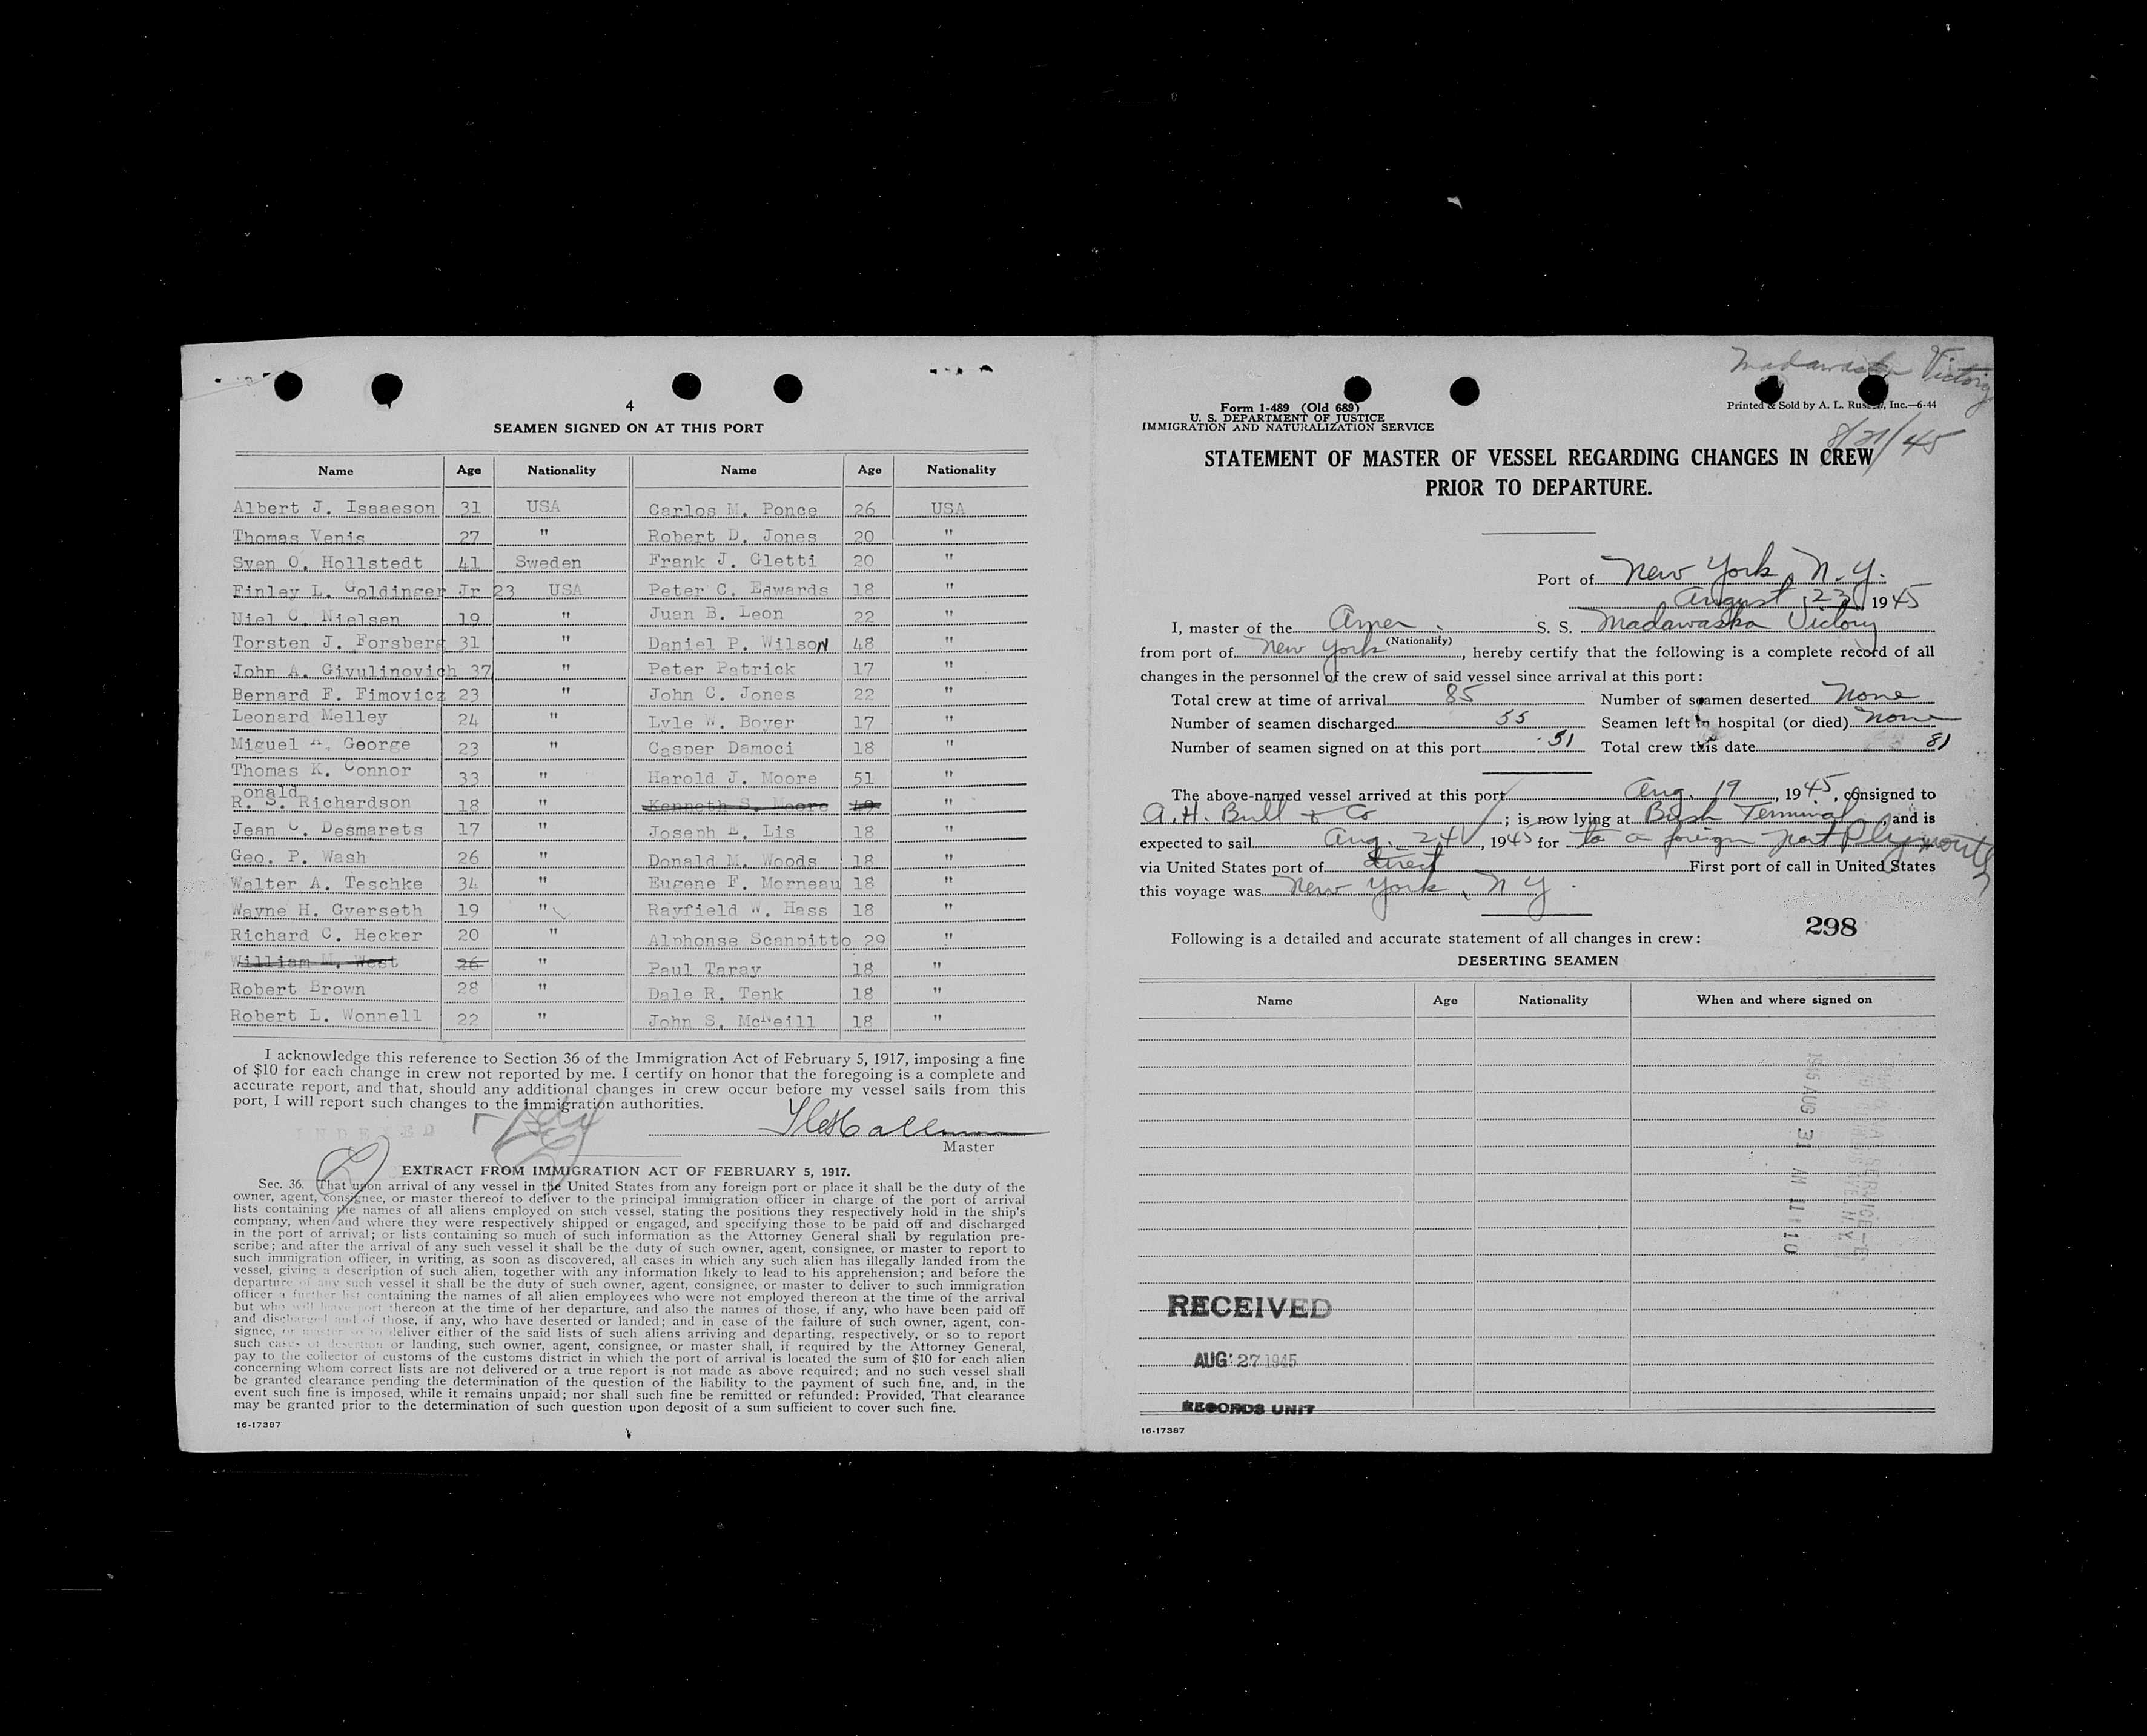 4
SEAMEN SIGNED ON AT THIS PORT
Name Age Nationality Name Age Nationality
Albert J. Isaaeson 31 USA Carlos M. Ponce 26 USA
Thomas Venis 27 " Robert D. Jones 20 "
Sven O. Hollstedt 41 Sweden Frank J. Gletti 20 "
Finley L. Goldinger Jr 23 USA Peter C. Edwards 18 "
Niel C. Nielsen 19 " Juan B. Leon 22 "
Torsten J. Forsberg 31 " Daniel P. Wilson 48 "
John A. Givulinovich 37 " Peter Patrick 17 "
Bernard F. Fimovicz 23 " John C. Jones 22 "
Leonard Melley 24 " Lyle W. Boyer 17 "
Miguel A. George 23 " Casper Damoci 18 "
Thomas K. Connor 33 " Harold J. Moore 51 "
onald
R. S. Richardson 18 " Kenneth S. Moore 19 "
Jean C. Desmarets 17 " Joseph Lis 18 "
Geo. P. Wash 26 " Donald M. Woods 18 "
Walter A. Teschke 34 " Eugene F. Morneau 18 "
Wayne H. Gverseth 19 " Rayfield W. Hass 18 "
Richard C. Hecker 20 " Alphonse Scannitto 29 "
William M. West 26 " Paul Taray 18 "
Robert Brown 28 " Dale R. Tenk 18 "
Robert L. Wonnell 22 " John S. McNeill 18 "
I acknowledge this reference to Section 36 of the Immigration Act of February 5, 1917, imposing a fine
of $10 for each change in crew not reported by me. I certify on honor that the foregoing is a complete and
accurate report, and that, should any additional changes in crew occur before my vessel sails from this
port, I will report such changes to the immigration authorities.
INDEXED
Master
EXTRACT FROM IMMIGRATION ACT OF FEBRUARY 5, 1917.
Sec. 36. That upon arrival of any vessel in the United States from any foreign port or place it shall be the duty of the
owner, agent, consignee, or master thereof to deliver to the principal immigration officer in charge of the port of arrival
lists containing the names of all aliens employed on such vessel, stating the positions they respectively hold in the ship's
company, when and where they were respectively shipped or engaged, and specifying those to be paid off and discharged
in the port of arrival; or lists containing so much of such information as the Attorney General shall by regulation pre-
scribe; and after the arrival of any such vessel it shall be the duty of such owner, agent, consignee, or master to report to
such immigration officer, in writing, as soon as discovered, all cases in which any such alien has illegally landed from the
vessel, giving a description of such alien, together with any information likely to lead to his apprehension; and before the
departure of any such vessel it shall be the duty of such owner, agent, consignee, or master to deliver to such immigration
officer a further list containing the names of all alien employees who were not employed thereon at the time of the arrival
but who will leave port thereon at the time of her departure, and also the names of those, if any, who have been paid off
and discharged and of those, if any, who have deserted or landed; and in case of the failure of such owner, agent, con-
signee, or master so to deliver either of the said lists of such aliens arriving and departing, respectively, or so to report
such cases of desertion or landing, such owner, agent, consignee, or master shall, if required by the Attorney General,
pay to the collector of customs of the customs district in which the port of arrival is located the sum of $10 for each alien
concerning whom correct lists are not delivered or a true report is not made as above required; and no such vessel shall
be granted clearance pending the determination of the question of the liability to the payment of such fine, and, in the
event such fine is imposed, while it remains unpaid; nor shall such fine be remitted or refunded: Provided, That clearance
may be granted prior to the determination of such question upon deposit of a sum sufficient to cover such fine.
16-17387
Madawaska Victory
Form 1-489 (Old 689)
U. S. DEPARTMENT OF JUSTICE
IMMIGRATION AND NATURALIZATION SERVICE
Printed & Sold by A. L. Russell, Inc.—6-44
8/21/45
STATEMENT OF MASTER OF VESSEL REGARDING CHANGES IN CREW
PRIOR TO DEPARTURE.
Port of New York, N.Y.
August 23 1945
I, master of the Amer. S. S. Madawaska Victory
(Nationality)
from port of New York, hereby certify that the following is a complete record of all
changes in the personnel of the crew of said vessel since arrival at this port:
Total crew at time of arrival 85 Number of seamen deserted None
Number of seamen discharged 55 Seamen left in hospital (or died) None
Number of seamen signed on at this port 51 Total crew this date 81
The above-named vessel arrived at this port Aug. 19, 1945, consigned to
A.H. Bull & Co; is now lying at Bush Terminal, and is
expected to sail Aug. 24, 1945 for to a foreign port Plymouth
via United States port of direct First port of call in United States
this voyage was New York, N Y.
298
Following is a detailed and accurate statement of all changes in crew:
DESERTING SEAMEN
Name Age Nationality When and where signed on
1945 AUG 31 AM 11 10
RECEIVED
AUG 27 1945
RECORDS UNIT
16-17387